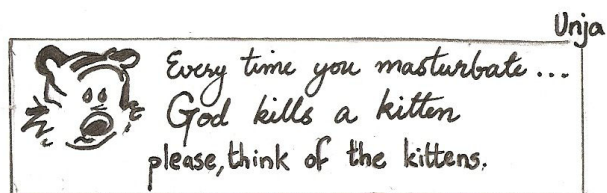 Unja
Every time you masturbate...
God kills a kitten
please, think of the kittens.